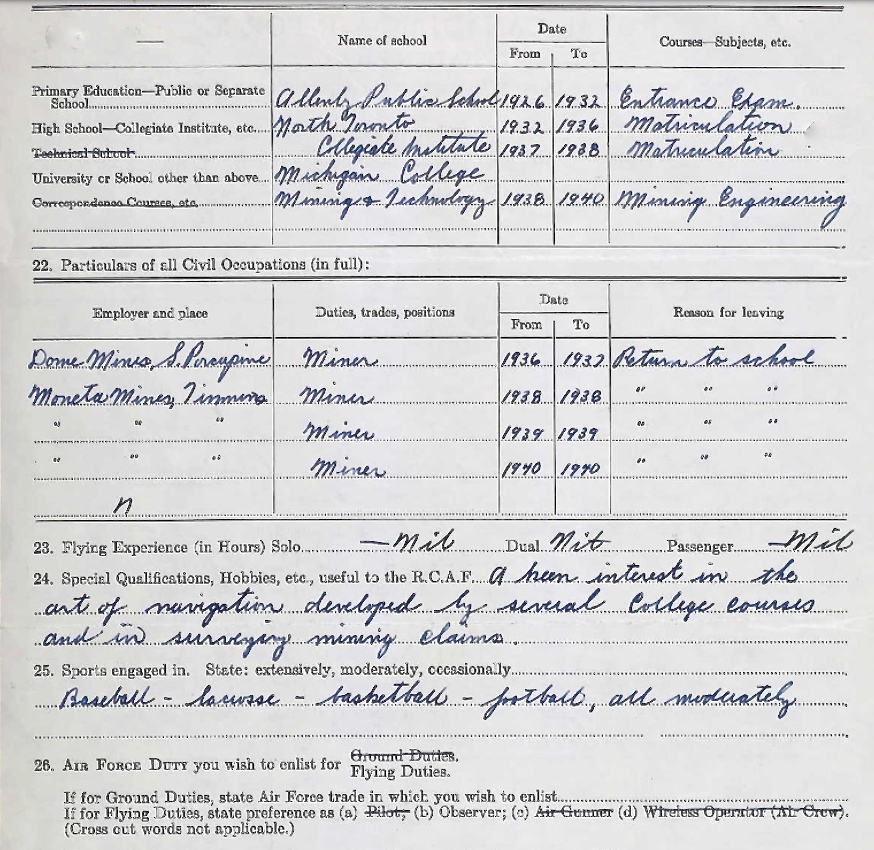 — Name of school Date Courses—Subjects, etc.
From To
Primary Education—Public or Separate
School Allenby Public School 1926 1932 Entrance Exam.
High School—Collegiate Institute, etc. North Toronto 1932 1936 Matriculation
Technical School Collegiate Institute 1937 1938 Matriculation
University or School other than above Michigan College
Correspondence Courses, etc. Mining & Technology 1938 1940 Mining Engineering
22. Particulars of all Civil Occupations (in full):
Employer and place Duties, trades, positions Date Reason for leaving
From To
Dome Mines, S. Porcupine Miner 1936 1937 Return to school
Moneta Mines, Timmins Miner 1938 1938 " " "
" " " Miner 1939 1939 " " "
" " " Miner 1940 1940 " " "
n
23. Flying Experience (in Hours) Solo — Nil Dual Nil Passenger — Nil
24. Special Qualifications, Hobbies, etc., useful to the R.C.A.F. A keen interest in the
art of navigation developed by several College courses
and in surveying mining claims.
25. Sports engaged in. State: extensively, moderately, occasionally
Baseball - lacrosse - basketball - football, all moderately
26. AIR FORCE DUTY you wish to enlist for Ground Duties.
Flying Duties.
If for Ground Duties, state Air Force trade in which you wish to enlist
If for Flying Duties, state preference as (a) Pilot; (b) Observer; (c) Air Gunner (d) Wireless Operator (Air Crew).
(Cross out words not applicable.)